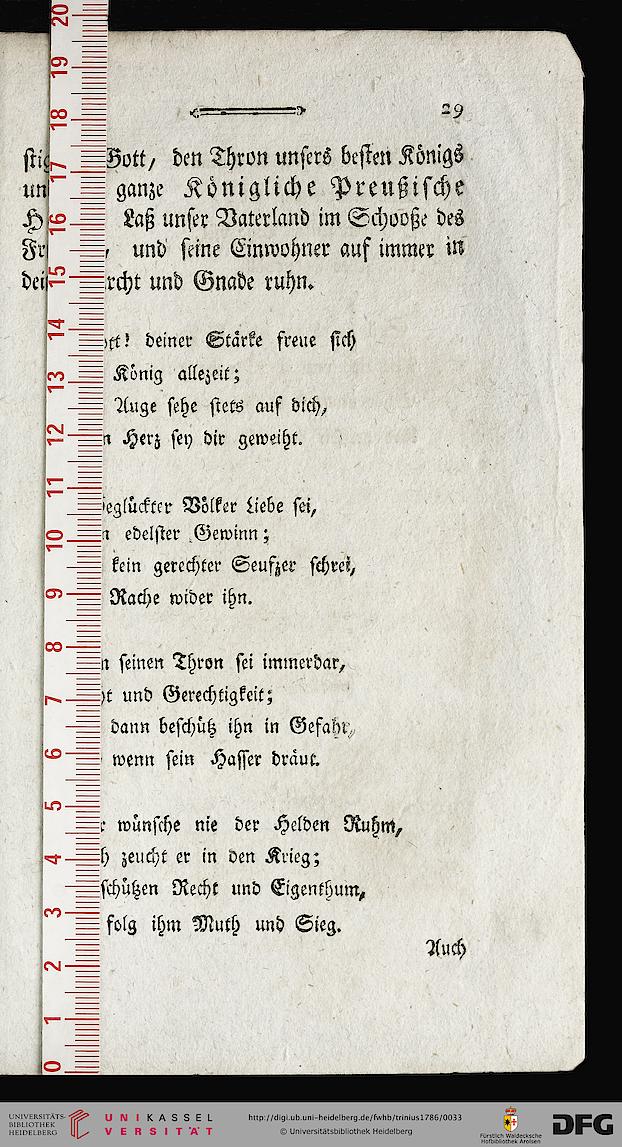 29
stig Gott, den Thron unsers besten Königs
un ganze Königliche Preußische
H Laß unser Vaterland im Schooße des
Fr , und seine Einwohner auf immer in
dei rcht und Gnade ruhn.
ott! deiner Stärke freue sich
König allezeit;
Auge sehe stets auf dich,
n Herz sey dir geweiht.
eglückter Völker Liebe sei,
n edelster Gewinn;
kein gerechter Seufzer schrei,
Rache wider ihn.
n seinen Thron sei immerdar,
ht und Gerechtigkeit;
dann beschütz ihn in Gefahr,
wenn sein Hasser dräut.
r wünsche nie der Helden Ruhm,
h zeucht er in den Krieg;
schützen Recht und Eigenthum,
folg ihm Muth und Sieg.
Auch
20
19
18
17
16
15
14
13
12
11
10
9
8
7
6
5
4
3
2
1
0
UNIVERSITÄTS-
BIBLIOTHEK
HEIDELBERG
UNIKASSEL
VERSITÄT
http://digi.ub.uni-heidelberg.de/fwhb/trinius1786/0033
© Universitätsbibliothek Heidelberg
Fürstlich Waldecksche
Hofbibliothek Arolsen
DFG